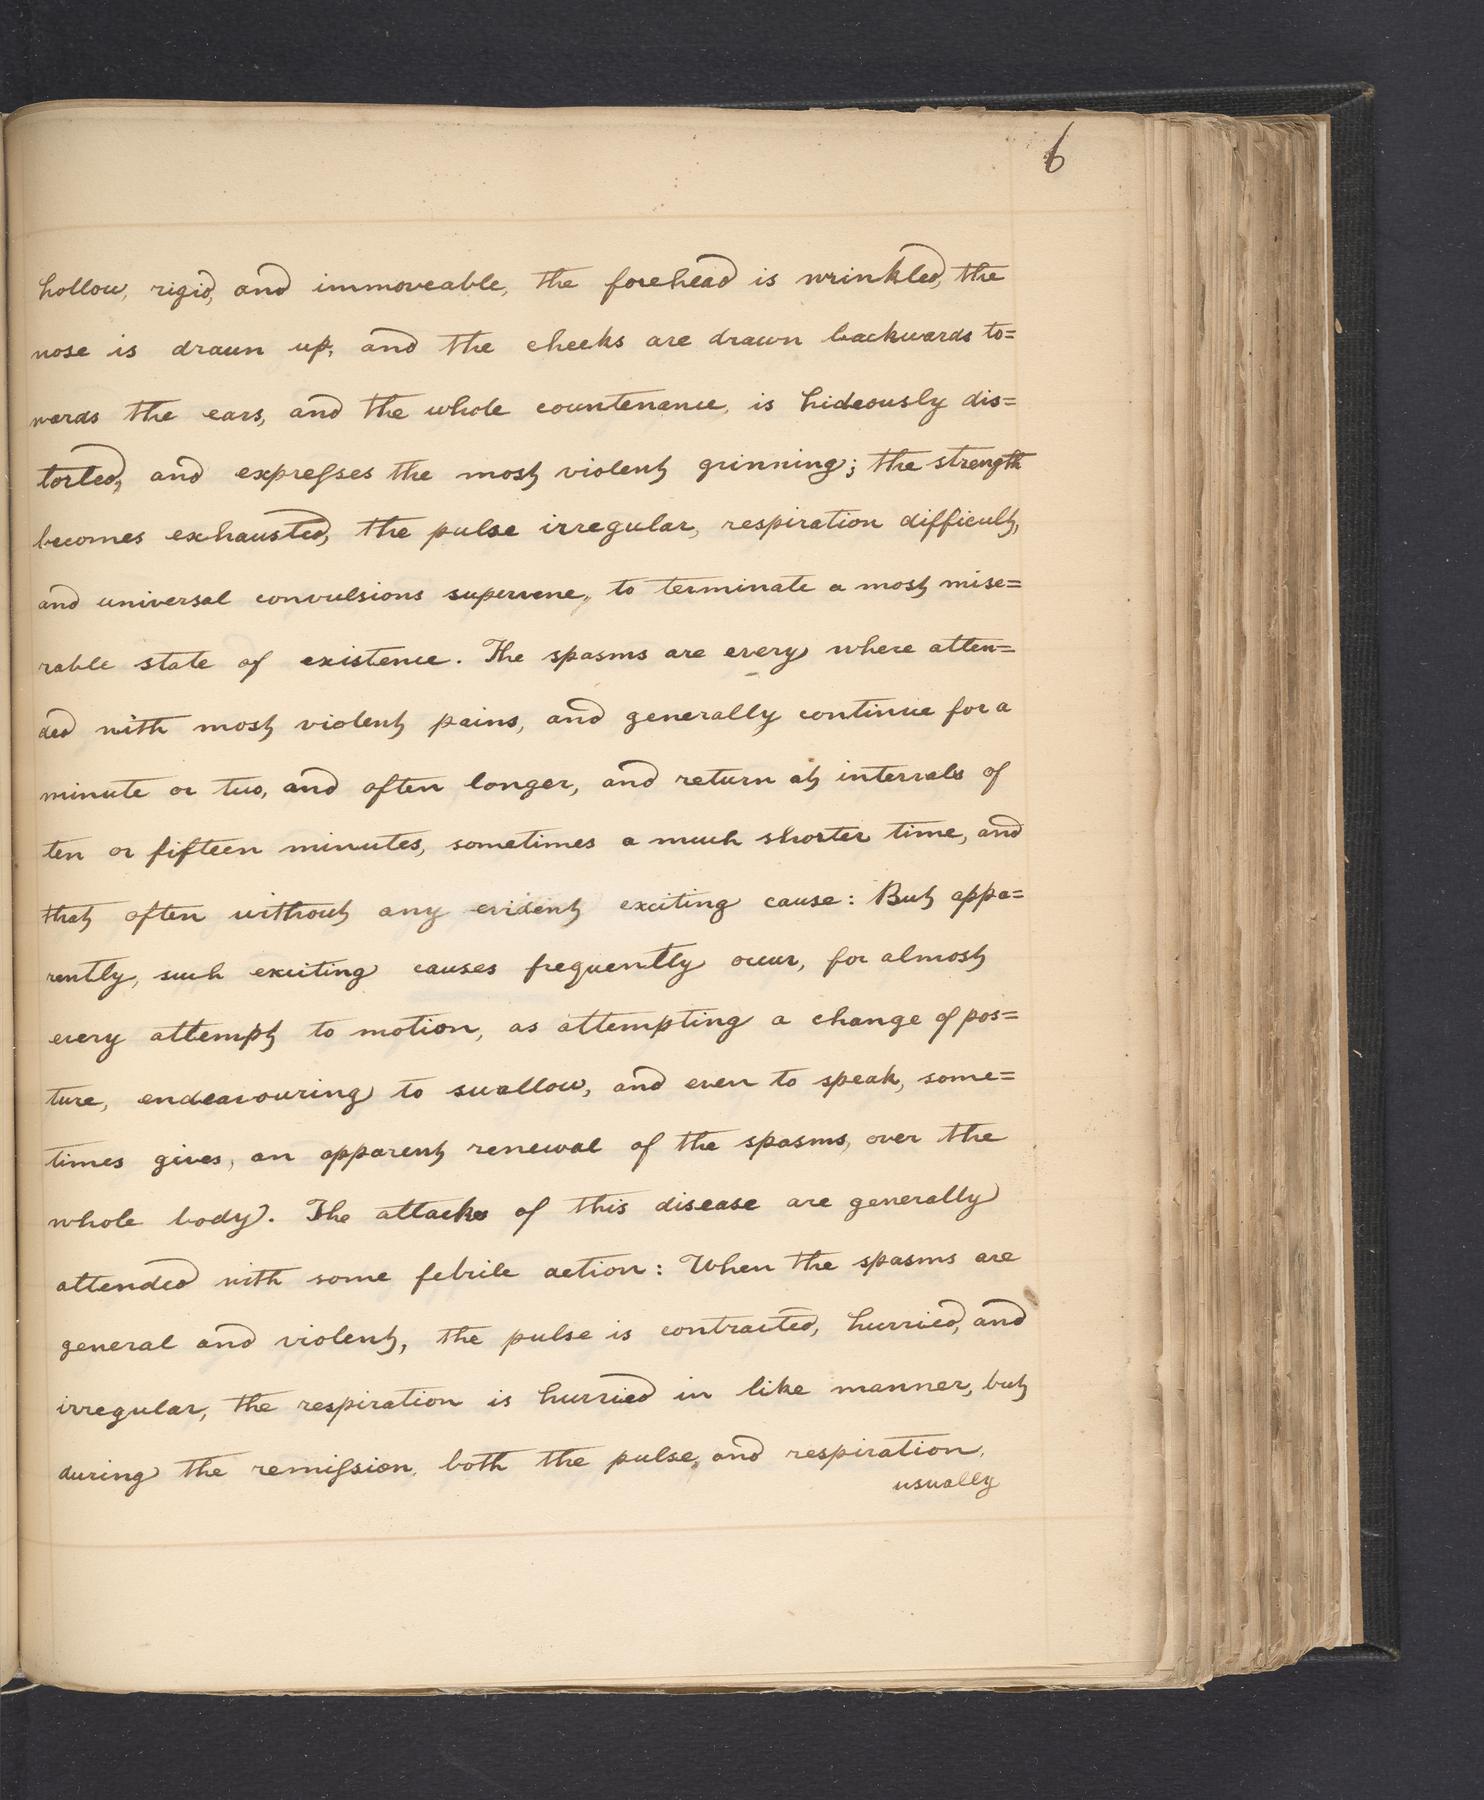 6
hollow, rigid, and immoveable, the forehead is wrinkled, the
nose is drawn up, and the cheeks are drawn backwards to=
wards the ears, and the whole countenance, is hideously dis=
torted, and expreſses the most violent grinning; the strength
becomes exhausted, the pulse irregular, respiration difficult,
and universal convulsions supervene, to terminate a most mise=
rable state of existence. The spasms are every where atten=
ded with most violent pains, and generally continue for a
minute or two, and often longer, and return at intervals of
ten or fifteen minutes, sometimes a much shorter time, and
that often without any evident exciting cause: But appa=
rently, such exciting causes frequently occur, for almost
every attempt to motion, as attempting a change of pos=
ture, endeavouring to swallow, and even to speak, some=
times gives, an apparent renewal of the spasms, over the
whole body. The attacks of this disease are generally
attended with some febrile action: When the spasms are
general and violent, the pulse is contracted, hurried, and
irregular, the respiration is hurried in like manner, but
during the remiſsion, both the pulse, and respiration,
usually